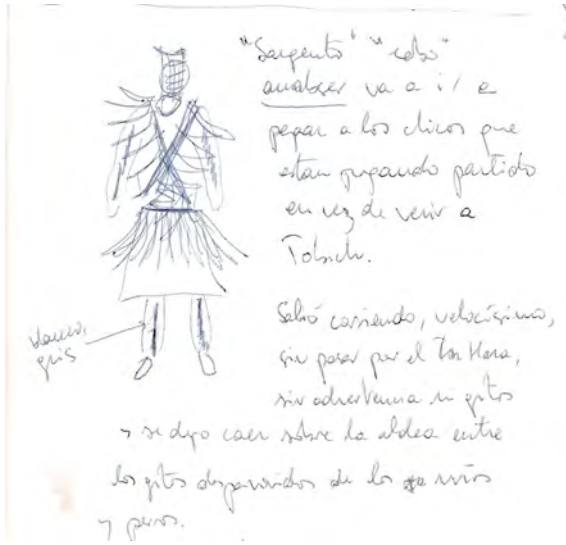 "Sargento" "cabo"
anabser va a ir a
pegar a los chicos que
estan jugando partido
en vez de venir a
Tobich.
Salió corriendo, velocísimo,
sin pasar por el
sin advertencia ni gritos
y se dejo caer sobre la aldea entre
los gritos despavoridos de los niños
y perros.
blanco,
gris